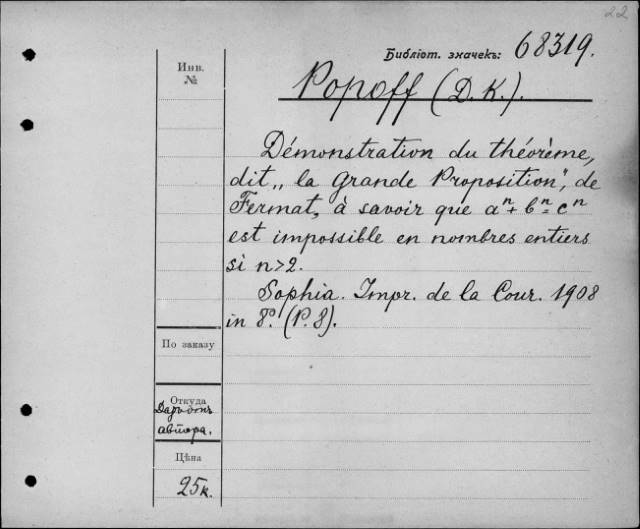 22
Библіот. значекъ: 68319.
Инв.
№
Popoff (D. K.).
Démonstration du théorème,
dit „ la Grande Proposition", de
Fermat, à savoir que aⁿ + bⁿ = cⁿ
est impossible en nombres entiers
si n > 2.
Sophia. Impr. de la Cour. 1908
in 8º. (P. 8).
По заказу
Откуда
автора.
Цѣна
25к.